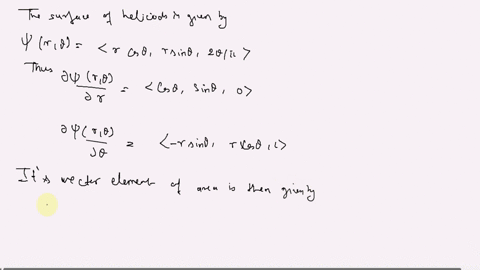 The surface of helicoids is given by
ψ(r,θ) = < r cosθ, r sinθ, 2θ/π >
Thus
∂ψ(r,θ)/∂r = < cosθ, sinθ, 0 >
∂ψ(r,θ)/∂θ = < -r sinθ, r cosθ, >
It's vector element of area is then given by